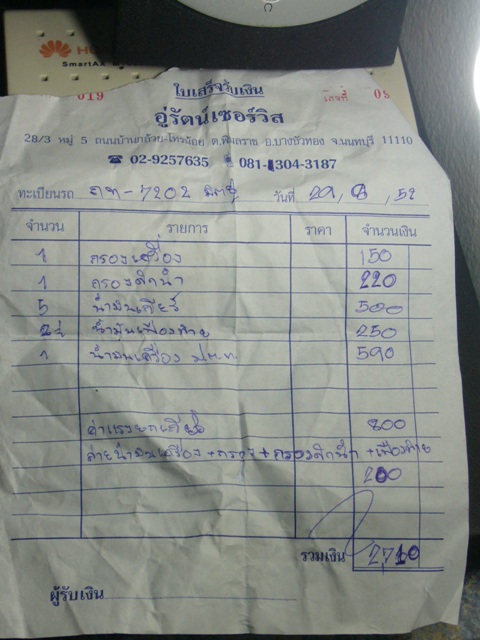 SmartAX
ใบเสร็จรับเงิน
019 เลขที่
อู่รัตน์เซอร์วิส
28/3 หมู่ 5 ถนนบ้านกล้วย-ไทรน้อย ต.พิมลราช อ.บางบัวทอง จ.นนทบุรี 11110
☎ 02-9257635 081-304-3187
ทะเบียนรถ 7202 วันที่ 52
จำนวน รายการ ราคา จำนวนเงิน
1 กรองเครื่อง 150
1 กรองดักน้ำ 220
5 น้ำมันเกียร์ 500
2½ น้ำมันเฟืองท้าย 250
1 น้ำมันเครื่อง ป.ต.ท. 590
ค่าแรงยกเกียร์ 800
ถ่ายน้ำมันเครื่อง+กรอง+กรองดักน้ำ+เฟืองท้าย
200
รวมเงิน 2,710
ผู้รับเงิน